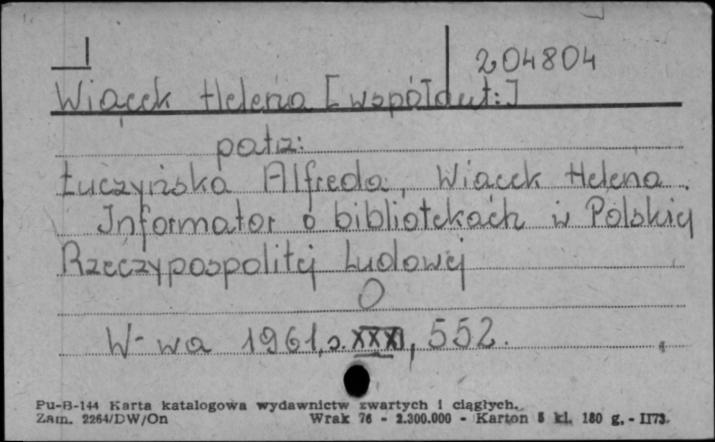 I
204804
Wiącek Helena [współaut:]
patrz:
Łuczyńska Alfreda, Wiącek Helena.
Informator o bibliotekach w Polskiej
Rzeczypospolitej Ludowej
W-wa 1961, s. XXXI, 552.
Pu-B-144 Karta katalogowa wydawnictw zwartych i ciągłych.
Zam. 2264/DW/On Wrak 76 - 2.300.000 - Karton 5 kl. 180 g. - II73.